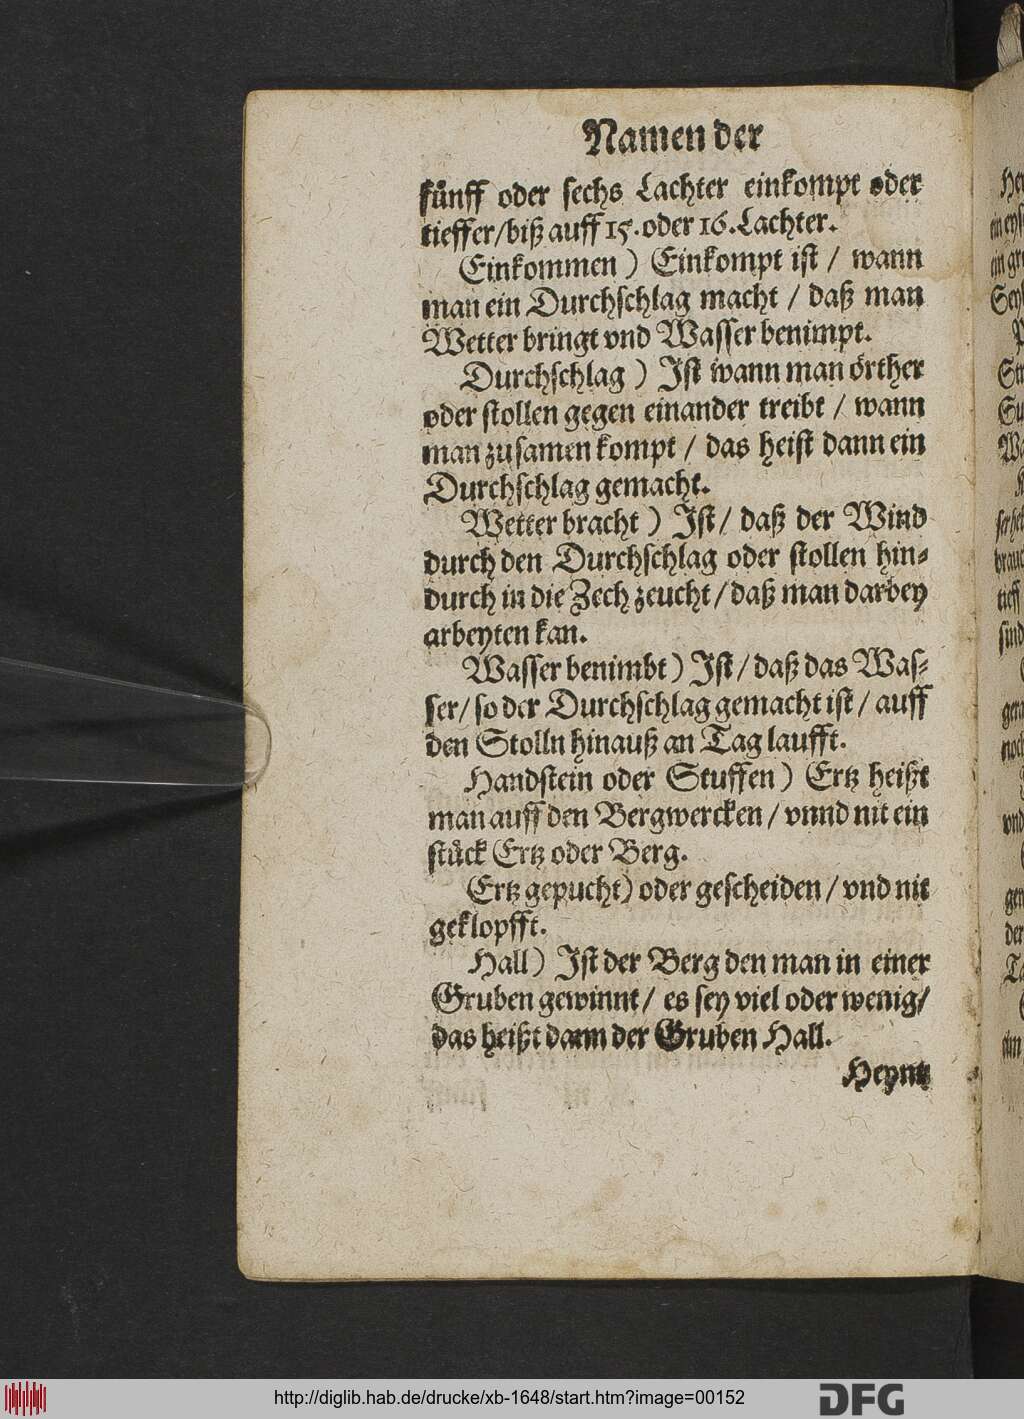 Namen der
fünff oder sechs Lachter einkompt oder
tieffer/biß auff 15. oder 16. Lachter.
Einkommen) Einkompt ist / wann
man ein Durchschlag macht / daß man
Wetter bringt vnd Wasser benimpt.
Durchschlag) Ist wann man örther
oder stollen gegen einander treibt / wann
man zusamen kompt / das heist dann ein
Durchschlag gemacht.
Wetter bracht) Ist / daß der Wind
durch den Durchschlag oder stollen hin-
durch in die Zech zeucht / daß man darbey
arbeyten kan.
Wasser benimbt) Ist / daß das Was-
ser / so der Durchschlag gemacht ist / auff
den Stolln hinauß an Tag laufft.
Handstein oder Stuffen) Ertz heißt
man auff den Bergwercken / vnnd nit ein
stück Ertz oder Berg.
Ertz gepucht) oder gescheiden / vnd nit
geklopfft.
Hall) Ist der Berg den man in einer
Gruben gewinnt / es sey viel oder wenig /
das heißt dann der Gruben Hall.
Heyntz
http://diglib.hab.de/drucke/xb-1648/start.htm?image=00152
DFG